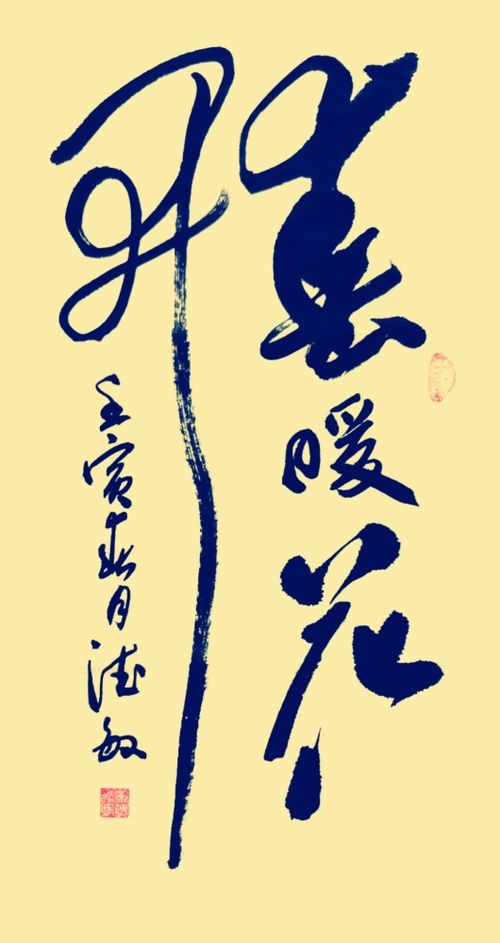 春暖花
开
壬寅春月德敏